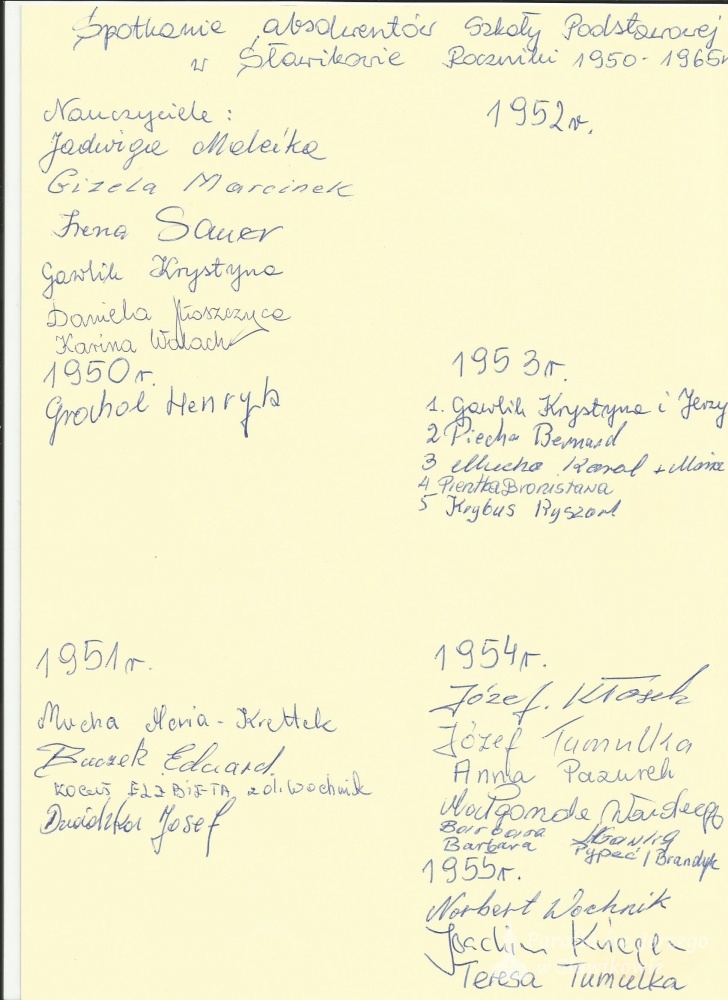 Spotkanie absolwentów Szkoły Podstawowej
w Sławikowie Roczniki 1950-1965r
Nauczyciele:
Jadwiga
Gizela Marcinek
Irena Sauer
Gawlik Krystyna
Daniela
Karina Walach
1950r.
Grochol Henryk
1951r.
Mucha Maria-Krettek
Buczek Eduard
KOCUŚ ELŻBIETA z d. Wochnik
Josef
1952r.
1953r.
1. Gawlik Krystyna i Jerzy
2 Piecha Bernard
3 Mucha Karol +
4 Pientka Bronisława
5 Krybus Ryszard
1954r.
Józef Kłosek
Józef Tumulka
Anna Pazurek
Barbara
Barbara Pypeć/Brandyk
1955r.
Norbert Wochnik
Joachim
Teresa Tumulka